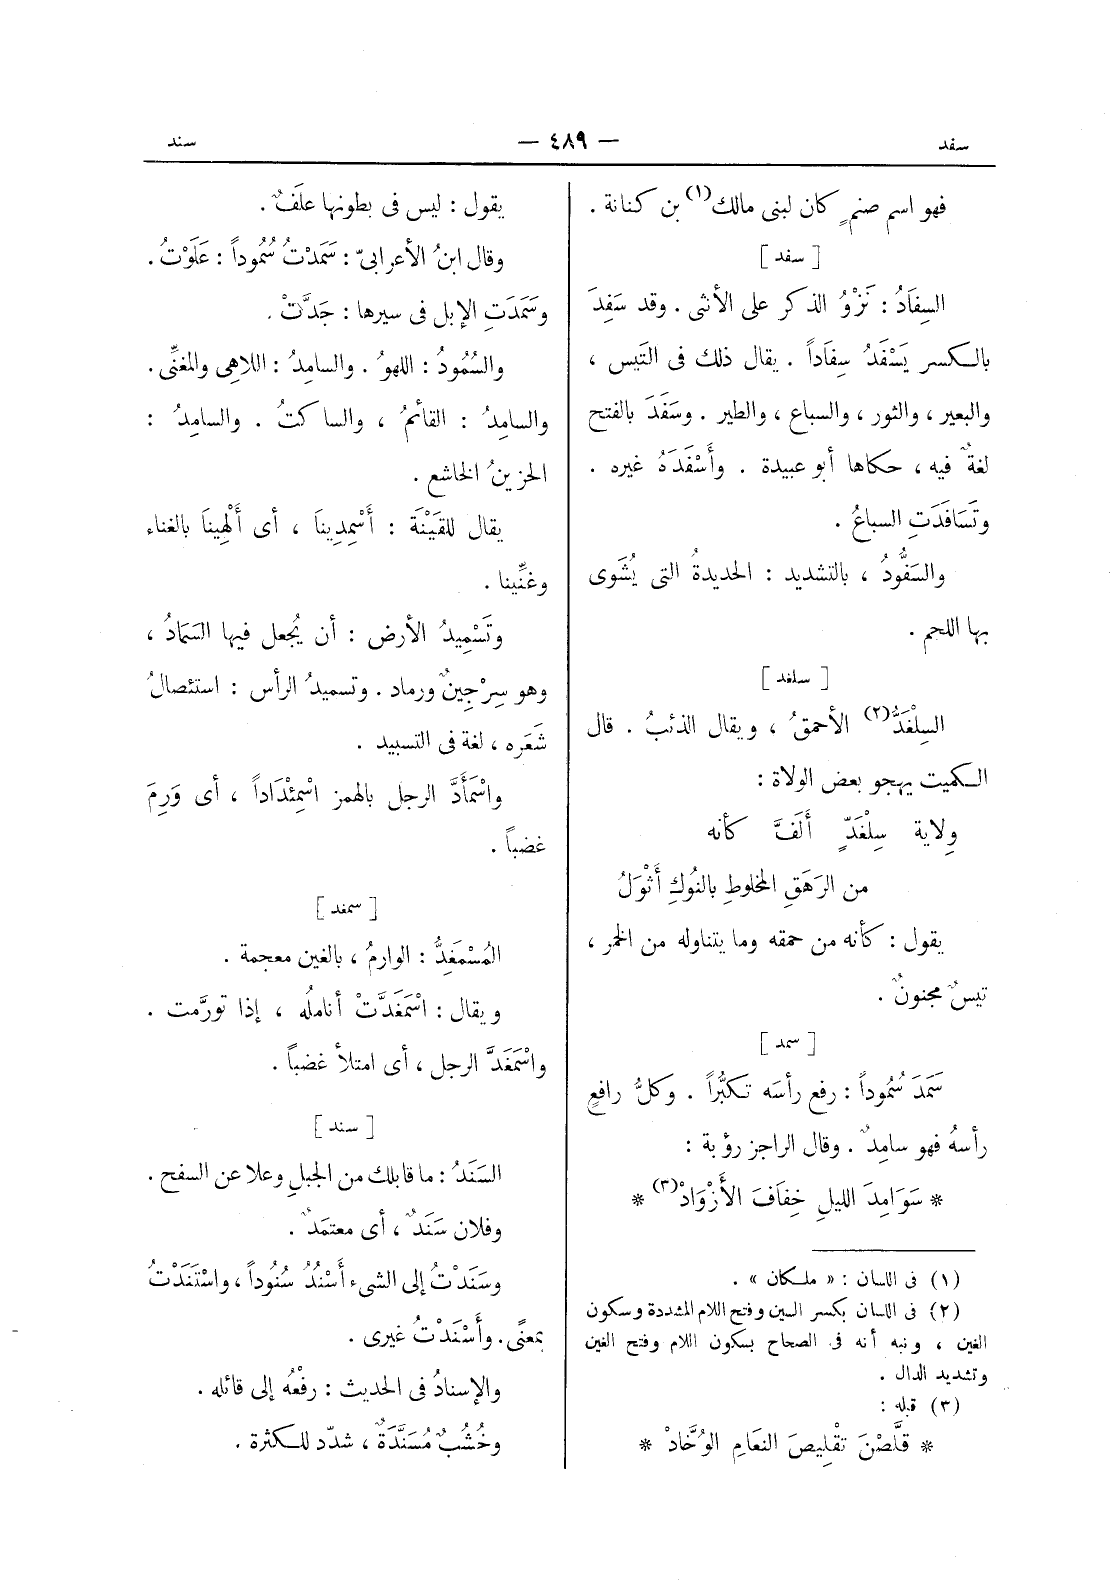 سفد
— ٤٨٩ —
سند
فهو اسم صنمٍ كان لبنى مالك(١) بن كنانة .
[ سفد ]
السِفَادُ : نَزْوُ الذكر على الأنثى . وقد سَفِدَ
بالكسر يَسْفَدُ سِفاداً . يقال ذلك فى التَيس ،
والبعير ، والثور ، والسباع ، والطير . وسَفَدَ بالفتح
لغةٌ فيه ، حكاها أبو عبيدة . وأَسْفَدَهُ غيره .
وتَسَافَدَتِ السباعُ .
والسَفُّودُ ، بالتشديد : الحديدةُ التى يُشْوى
بها اللحم .
[ سلغد ]
السِلْغَدُّ(٢) الأحمقُ ، ويقال الذئبُ . قال
الكميت يهجو بعض الولاة :
وِلاية سِلْغَدٍّ أَلَفَّ كأنه
من الرَهَقِ المخلوطِ بالنُوكِ أَثْوَلُ
يقول : كأنه من حمقه وما يتناوله من الخمر ،
تيسٌ مجنونٌ .
[ سمد ]
سَمَدَ سُمُوداً : رفع رأسَه تكبُّراً . وكلُّ رافعٍ
رأسهُ فهو سامِدٌ . وقال الراجز رؤبة :
* سَوَامِدَ الليلِ خِفَافَ الأَزْوَادْ(٣) *
(١) فى اللسان : « ملكان » .
(٢) فى اللسان بكسر السين وفتح اللام المشددة وسكون
الغين ، ونبه أنه فى الصحاح بسكون اللام وفتح الغين
وتشديد الدال .
(٣) قبله :
* قَلَّصْنَ تَقْلِيصَ النعَامِ الوُخَّادْ *
يقول : ليس فى بطونها علَفٌ .
وقال ابنُ الأعرابىّ : سَمَدْتُ سُمُوداً : عَلَوْتُ .
وسَمَدَتِ الإبل فى سيرها : جَدَّتْ .
والسُمُودُ : اللهوُ . والسامِدُ : اللاهِى والمغنِّى .
والسامِدُ : القائمُ ، والساكتُ . والسامِدُ :
الحزينُ الخاشع .
يقال للقَيْنَة : أَسْمِدِينَا ، أى أَلْهِينَا بالغناء
وغنِّينا .
وتَسْمِيدُ الأرض : أن يُجعل فيها السَمَادُ ،
وهو سِرْجِينٌ ورماد . وتسميدُ الرأس : استئصالُ
شَعَره ، لغة فى التسبيد .
واسْمَأَدَّ الرجل بالهمز اسْمِئْدَاداً ، أى وَرِمَ
غضباً .
[ سمغد ]
المُسْمَغِدُّ : الوارمُ ، بالغين معجمة .
ويقال : اسْمَغَدَّتْ أناملُه ، إذا تورَّمت .
واسْمَغَدَّ الرجل ، أى امتلأ غضباً .
[ سند ]
السَنَدُ : ما قابلك من الجبلِ وعلا عن السفح .
وفلان سَنَدٌ ، أى معتمَدٌ .
وسَنَدْتُ إلى الشىء أَسْنُدُ سُنُوداً ، واسْتَنَدْتُ
بمعنًى. وأَسْنَدْتُ غيرى .
والإسنادُ فى الحديث : رفْعُه إلى قائله .
وخُشُبٌ مُسَنَّدَةٌ ، شدّد للكثرة .